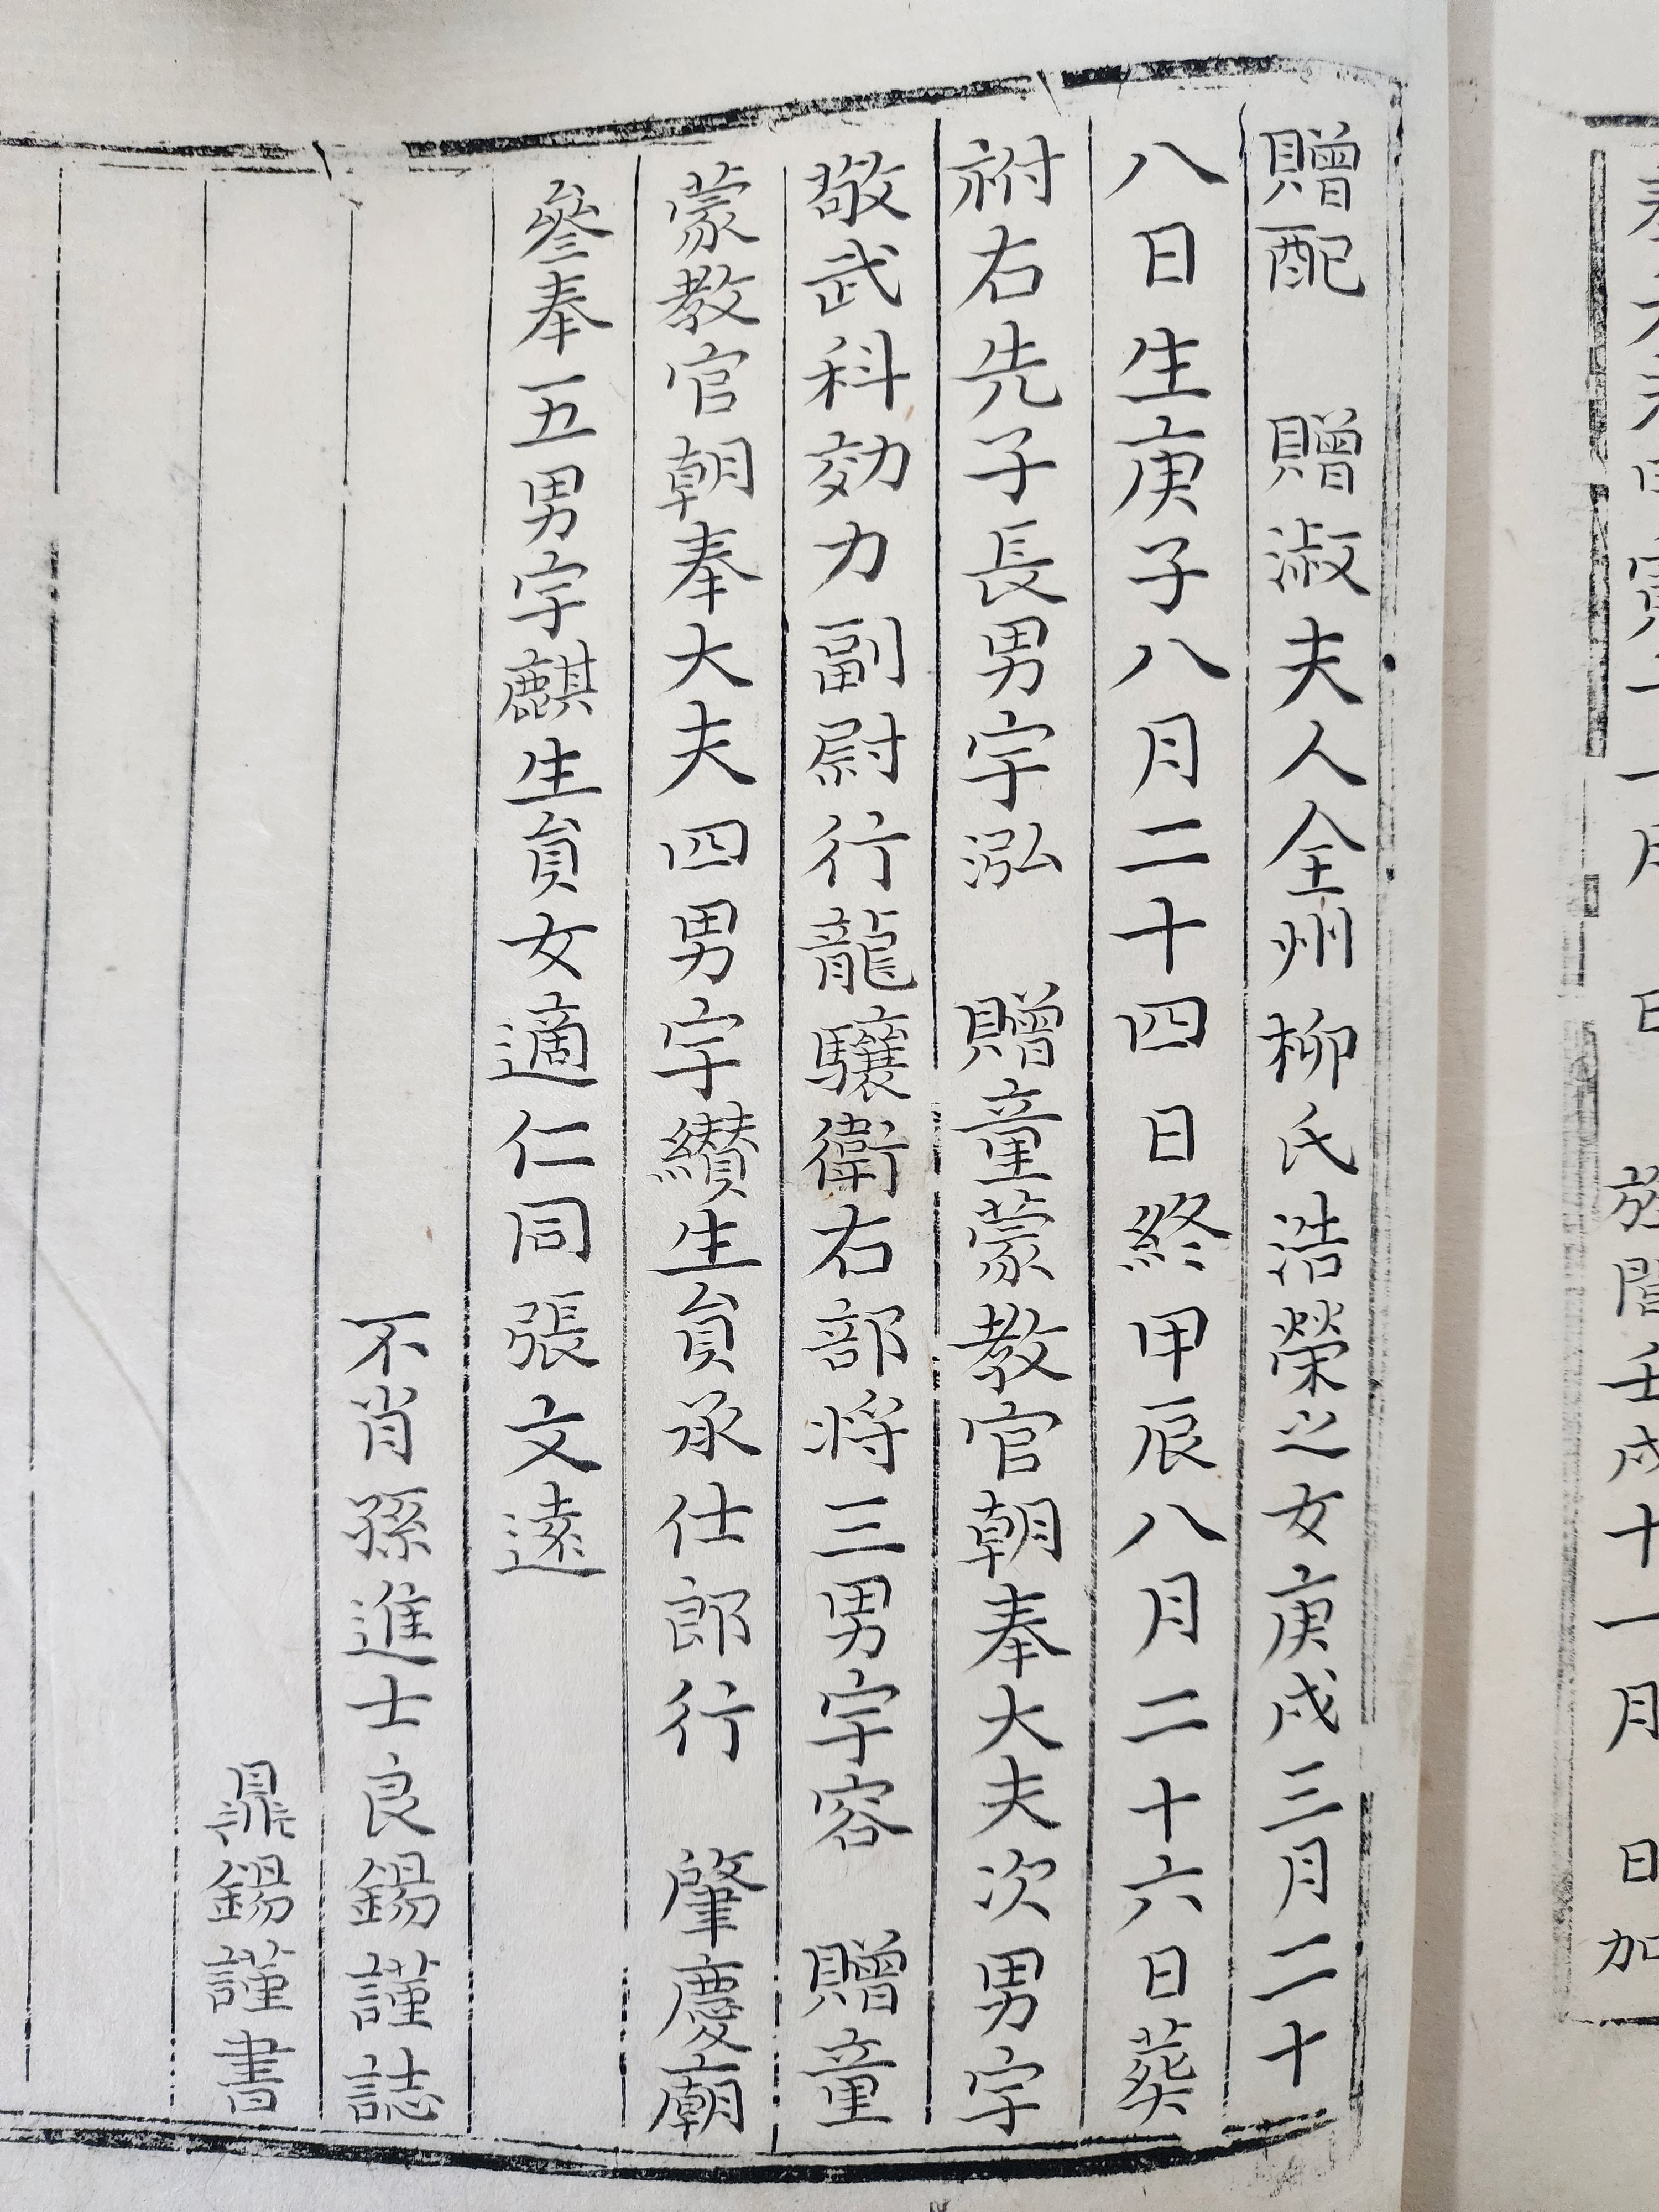 十一月 日 壬戌十一月 日加
贈配 贈淑夫人全州柳氏榮之女庚戌三月二十
八日生庚子八月二十四日終甲辰八月二十六日葬
祔右先子長男字泓 贈童蒙教官朝奉大夫次男字
敬武科効力副尉行龍驤衛右部將三男字溶 贈童
蒙教官朝奉大夫四男字生員仕郎行 肇慶廟
參奉五男字麒生員女適仁同張文
孫通士良錫謹誌
錫謹書